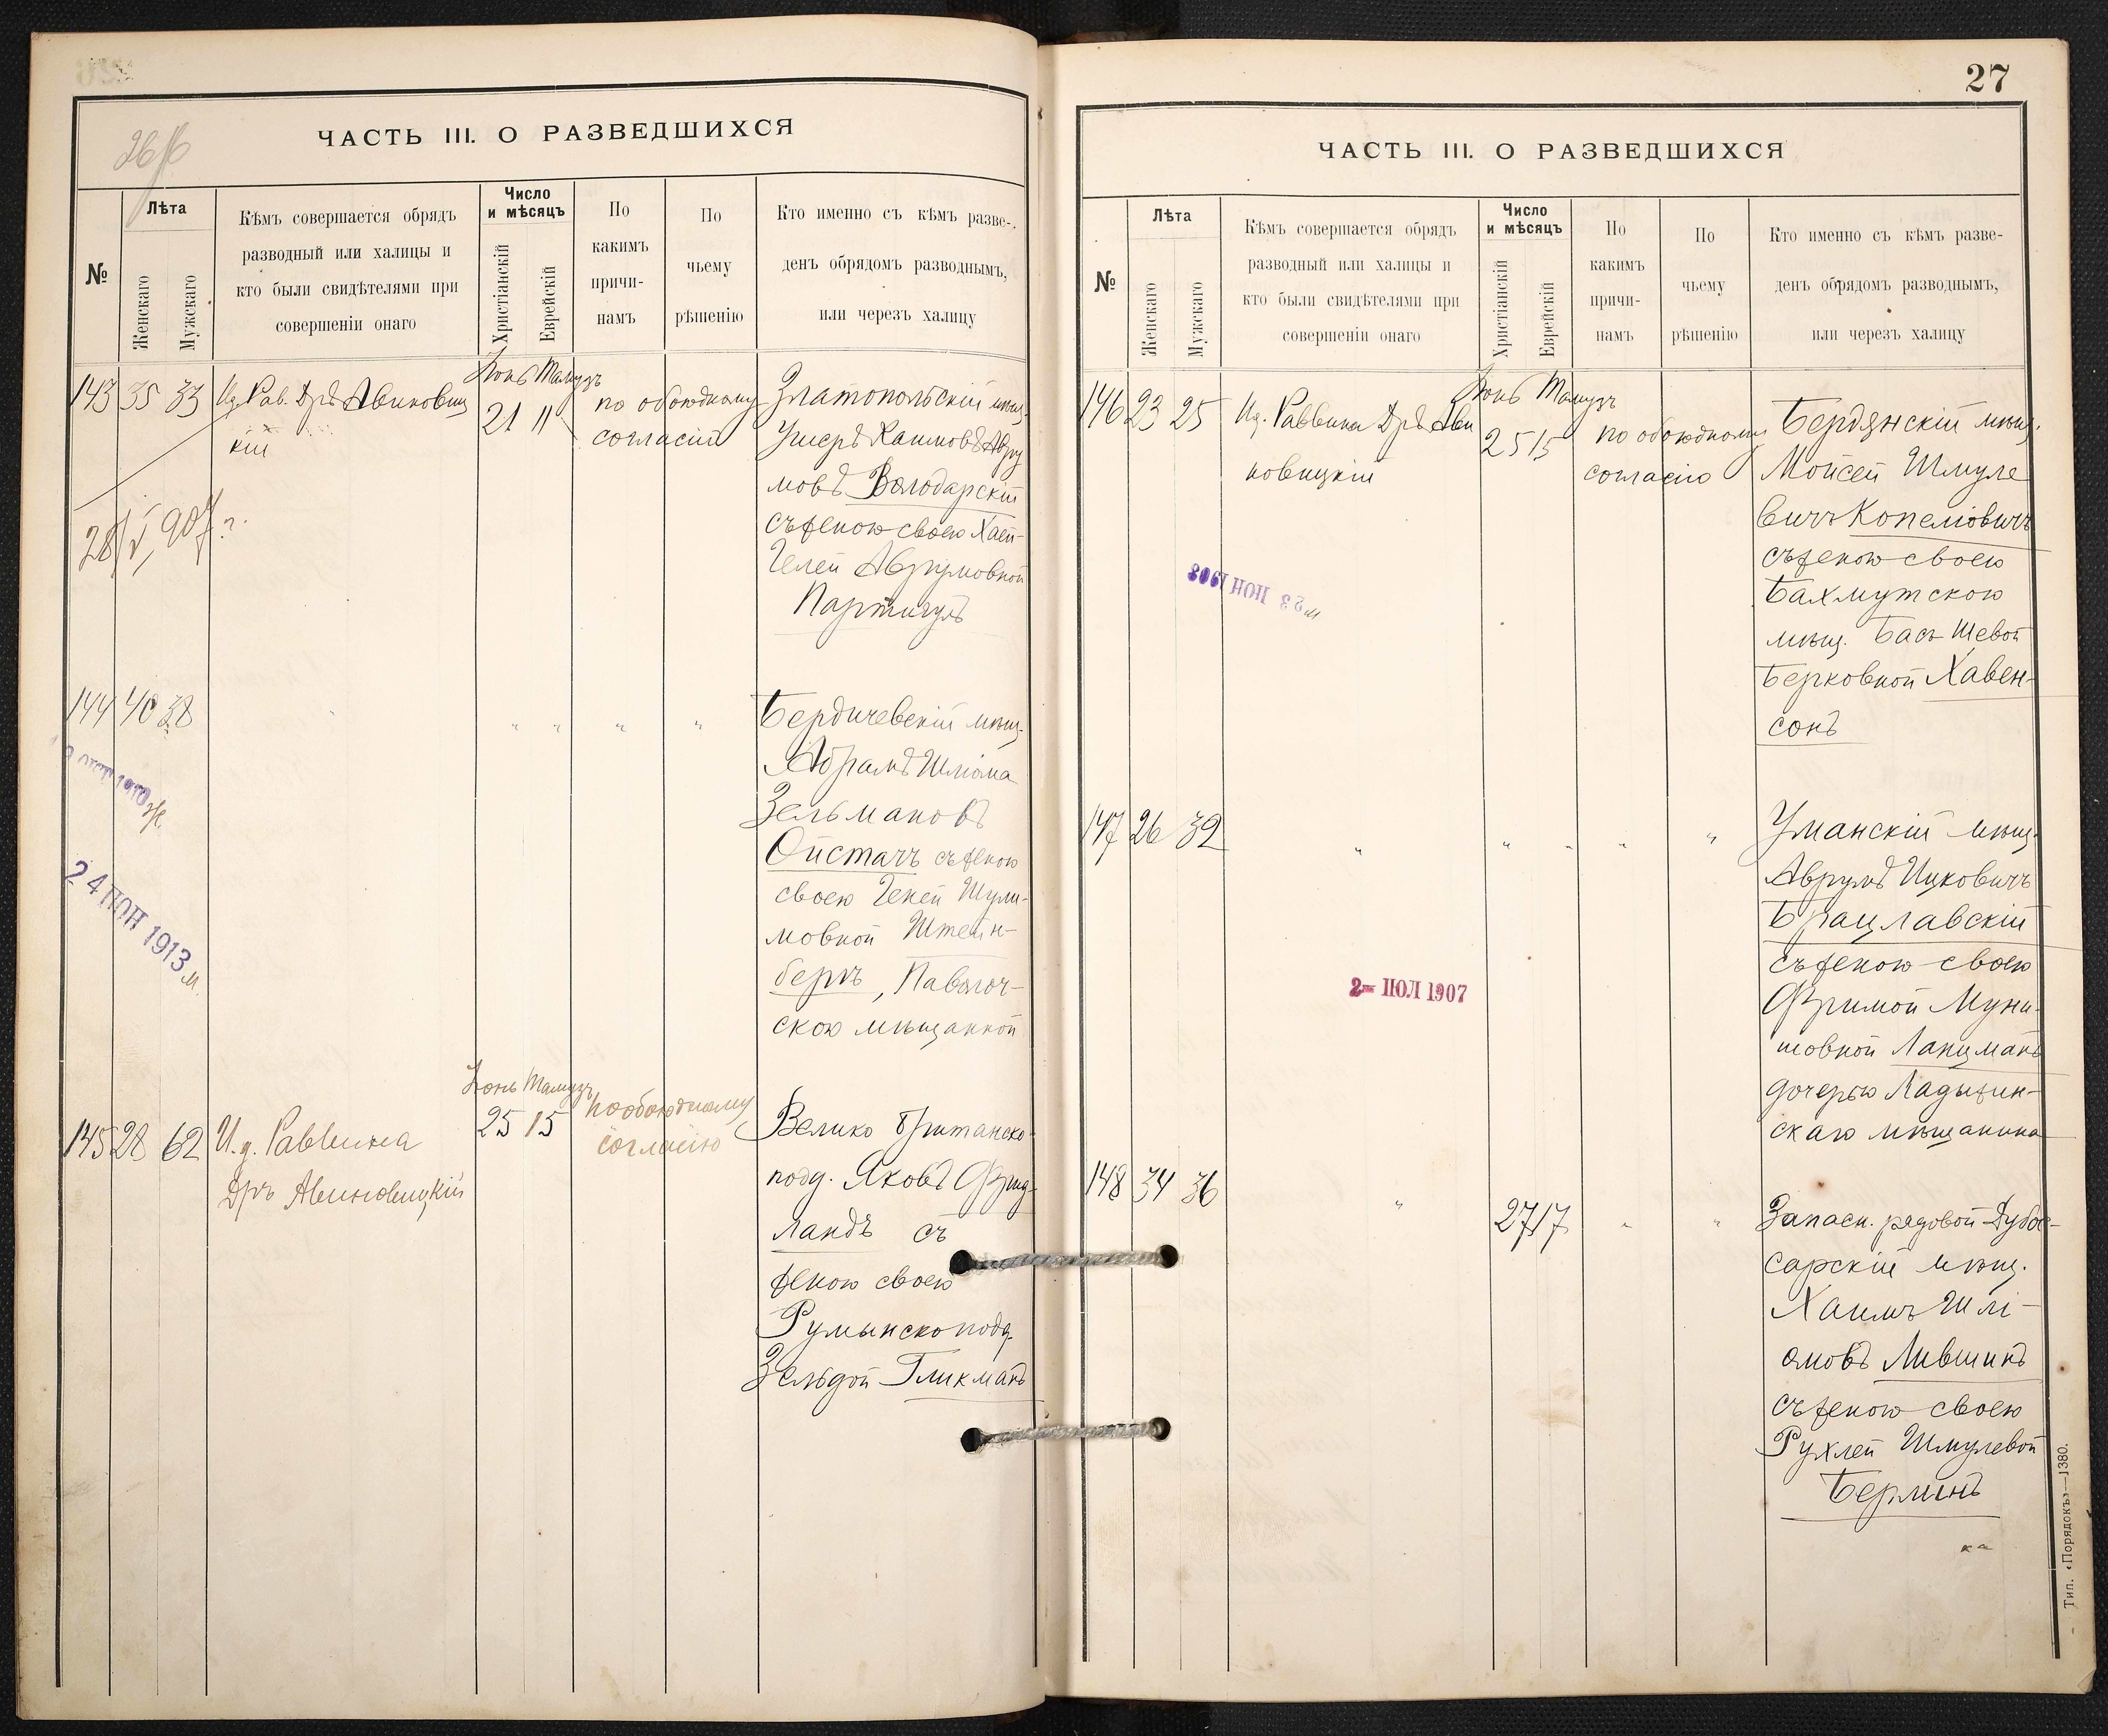 ЧАСТЬ III. О РАЗВЕДШИХСЯ
№
Лѣта
Женскаго
Мужскаго
Кѣмъ совершается обрядъ
разводный или халицы и
кто были свидѣтелями при
совершеніи онаго
Число
и мѣсяцъ
Христіанскій
Еврейскій
По
какимъ
причи-
намъ
По
чьему
рѣшенію
Кто именно съ кѣмъ разве-
денъ обрядомъ разводнымъ,
или черезъ халицу
143 35 33 Ид. Рав. Дръ Авиновиц
кій
Іюнь Тамузъ
21 11
по обоюдному
согласію
Златопольскій мѣщ.
Ушеръ Хаимовъ Авру
мовъ Володарскій
съ женою своею Хаей-
Гелей Аврумовной
Партигулъ
28/V, 907 г.
144 40 38 " " " "
Бердичевскій мѣщ.
Абрамъ Шліома
Зельмановъ
Ойстачъ съ женою
своею Геней Шули-
мовной Штейн-
бергъ, Паволоч-
скою мѣщанкой
ОКТ 1910 ж.
24 ІЮН 1913 м.
145 28 62 И. д. Раввина
Дръ Авиновицкій
Іюнь Тамузъ
25 15
по обоюдному
согласію
Велико Британско-
подд. Яковъ Фрид-
ландъ съ
женою своею
Румынскоподд.
Зельдой Гликманъ
27
ЧАСТЬ III. О РАЗВЕДШИХСЯ
№
Лѣта
Женскаго
Мужскаго
Кѣмъ совершается обрядъ
разводный или халицы и
кто были свидѣтелями при
совершеніи онаго
Число
и мѣсяцъ
Христіанскій
Еврейскій
По
какимъ
причи-
намъ
По
чьему
рѣшенію
Кто именно съ кѣмъ разве-
денъ обрядомъ разводнымъ,
или черезъ халицу
146 23 25 Ид. Раввина Дръ Ави
новицкій
Іюнь Тамузъ
25 15
по обоюдному
согласію
Бердянскій мѣщ.
Мойсей Шмуле
вичъ Копеліовичъ
съ женою своею
Бахмутскою
мѣщ. Бась Шевой
Берковной Хавен-
сонъ
23 ІЮН 1908 м
147 26 32 " " " " "
Уманскій мѣщ.
Аврумъ Ицковичъ
Брацлавскій
съ женою своею
Фримой Муни-
шовной Ланцманъ
дочерью Ладыжин-
скаго мѣщанина
2 ІЮЛ 1907
148 34 36 " 27 17 " "
Запасн. рядовой Дубос-
сарскій мѣщ.
Хаимъ Шлі-
омовъ Лившинъ
съ женою своею
Рухлей Шмулевой
Берлинъ
Тип. «Порядокъ»—1380.